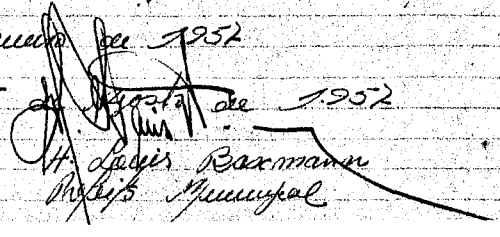 de 1952
de Agosto de 1952
H. Louis Baxmann
Prefeito Municipal